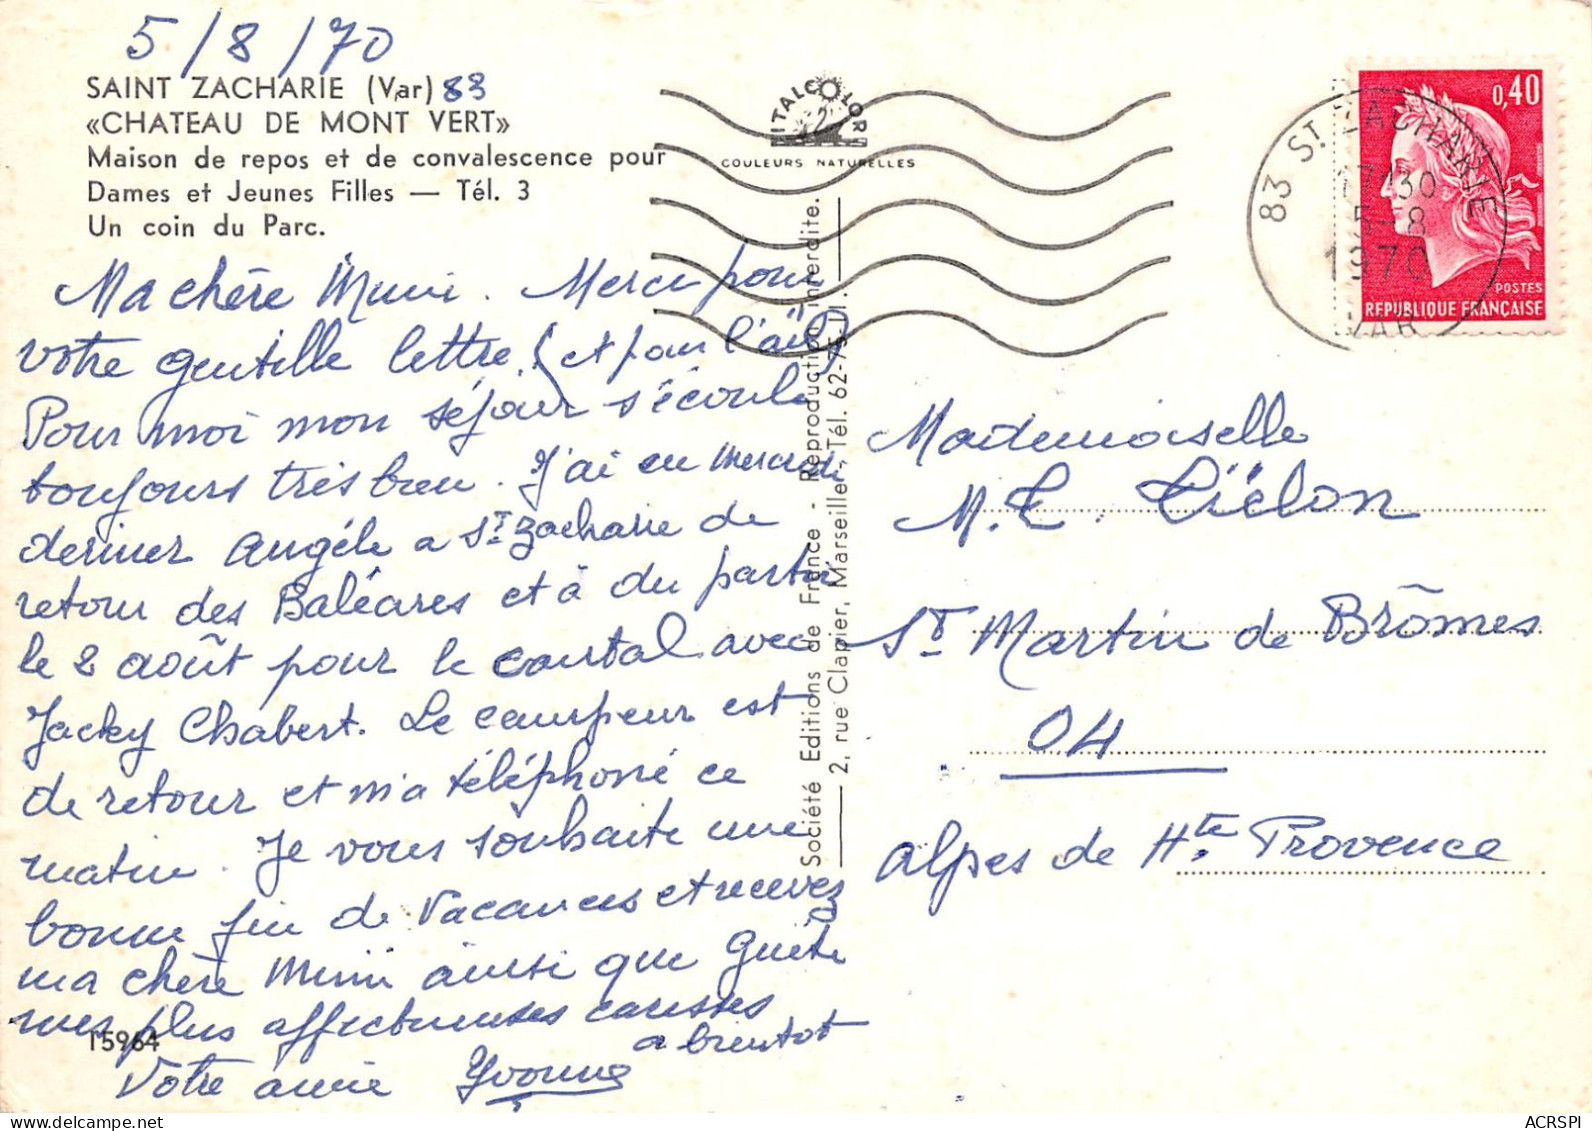 5/8/70
SAINT ZACHARIE (Var) 83
«CHATEAU DE MONT VERT»
Maison de repos et de convalescence pour
Dames et Jeunes Filles — Tél. 3
Un coin du Parc.
ITALCOLOR
COULEURS NATURELLES
0,40
POSTES
REPUBLIQUE FRANÇAISE
83 ST ZACHARIE
17H30
5-8
1970
VAR
Ma chère Mimi. Merci pour
votre gentille lettre (et pour l'ail)
Pour moi mon séjour s'écoule
toujours très bien. J'ai eu mercredi
dernier Angéle a St Zacharie de
retour des Baléares et à du partir
le 2 août pour le cantal avec
Jacky Chabert. Le campeur est
de retour et m'a téléphoné ce
matin. Je vous souhaite une
bonne fin de vacances et recevez
ma chère Mimi ainsi que
mes plus affectueuses caresses
a bientot
Votre amie Yvonne
15964
Société Editions de France - Reproduction interdite.
2, rue Clapier, Marseille - Tél. 62-75-11.
Mademoiselle
M. L.
St Martin de Brômes
04
Alpes de Hte Provence
ACRSPI